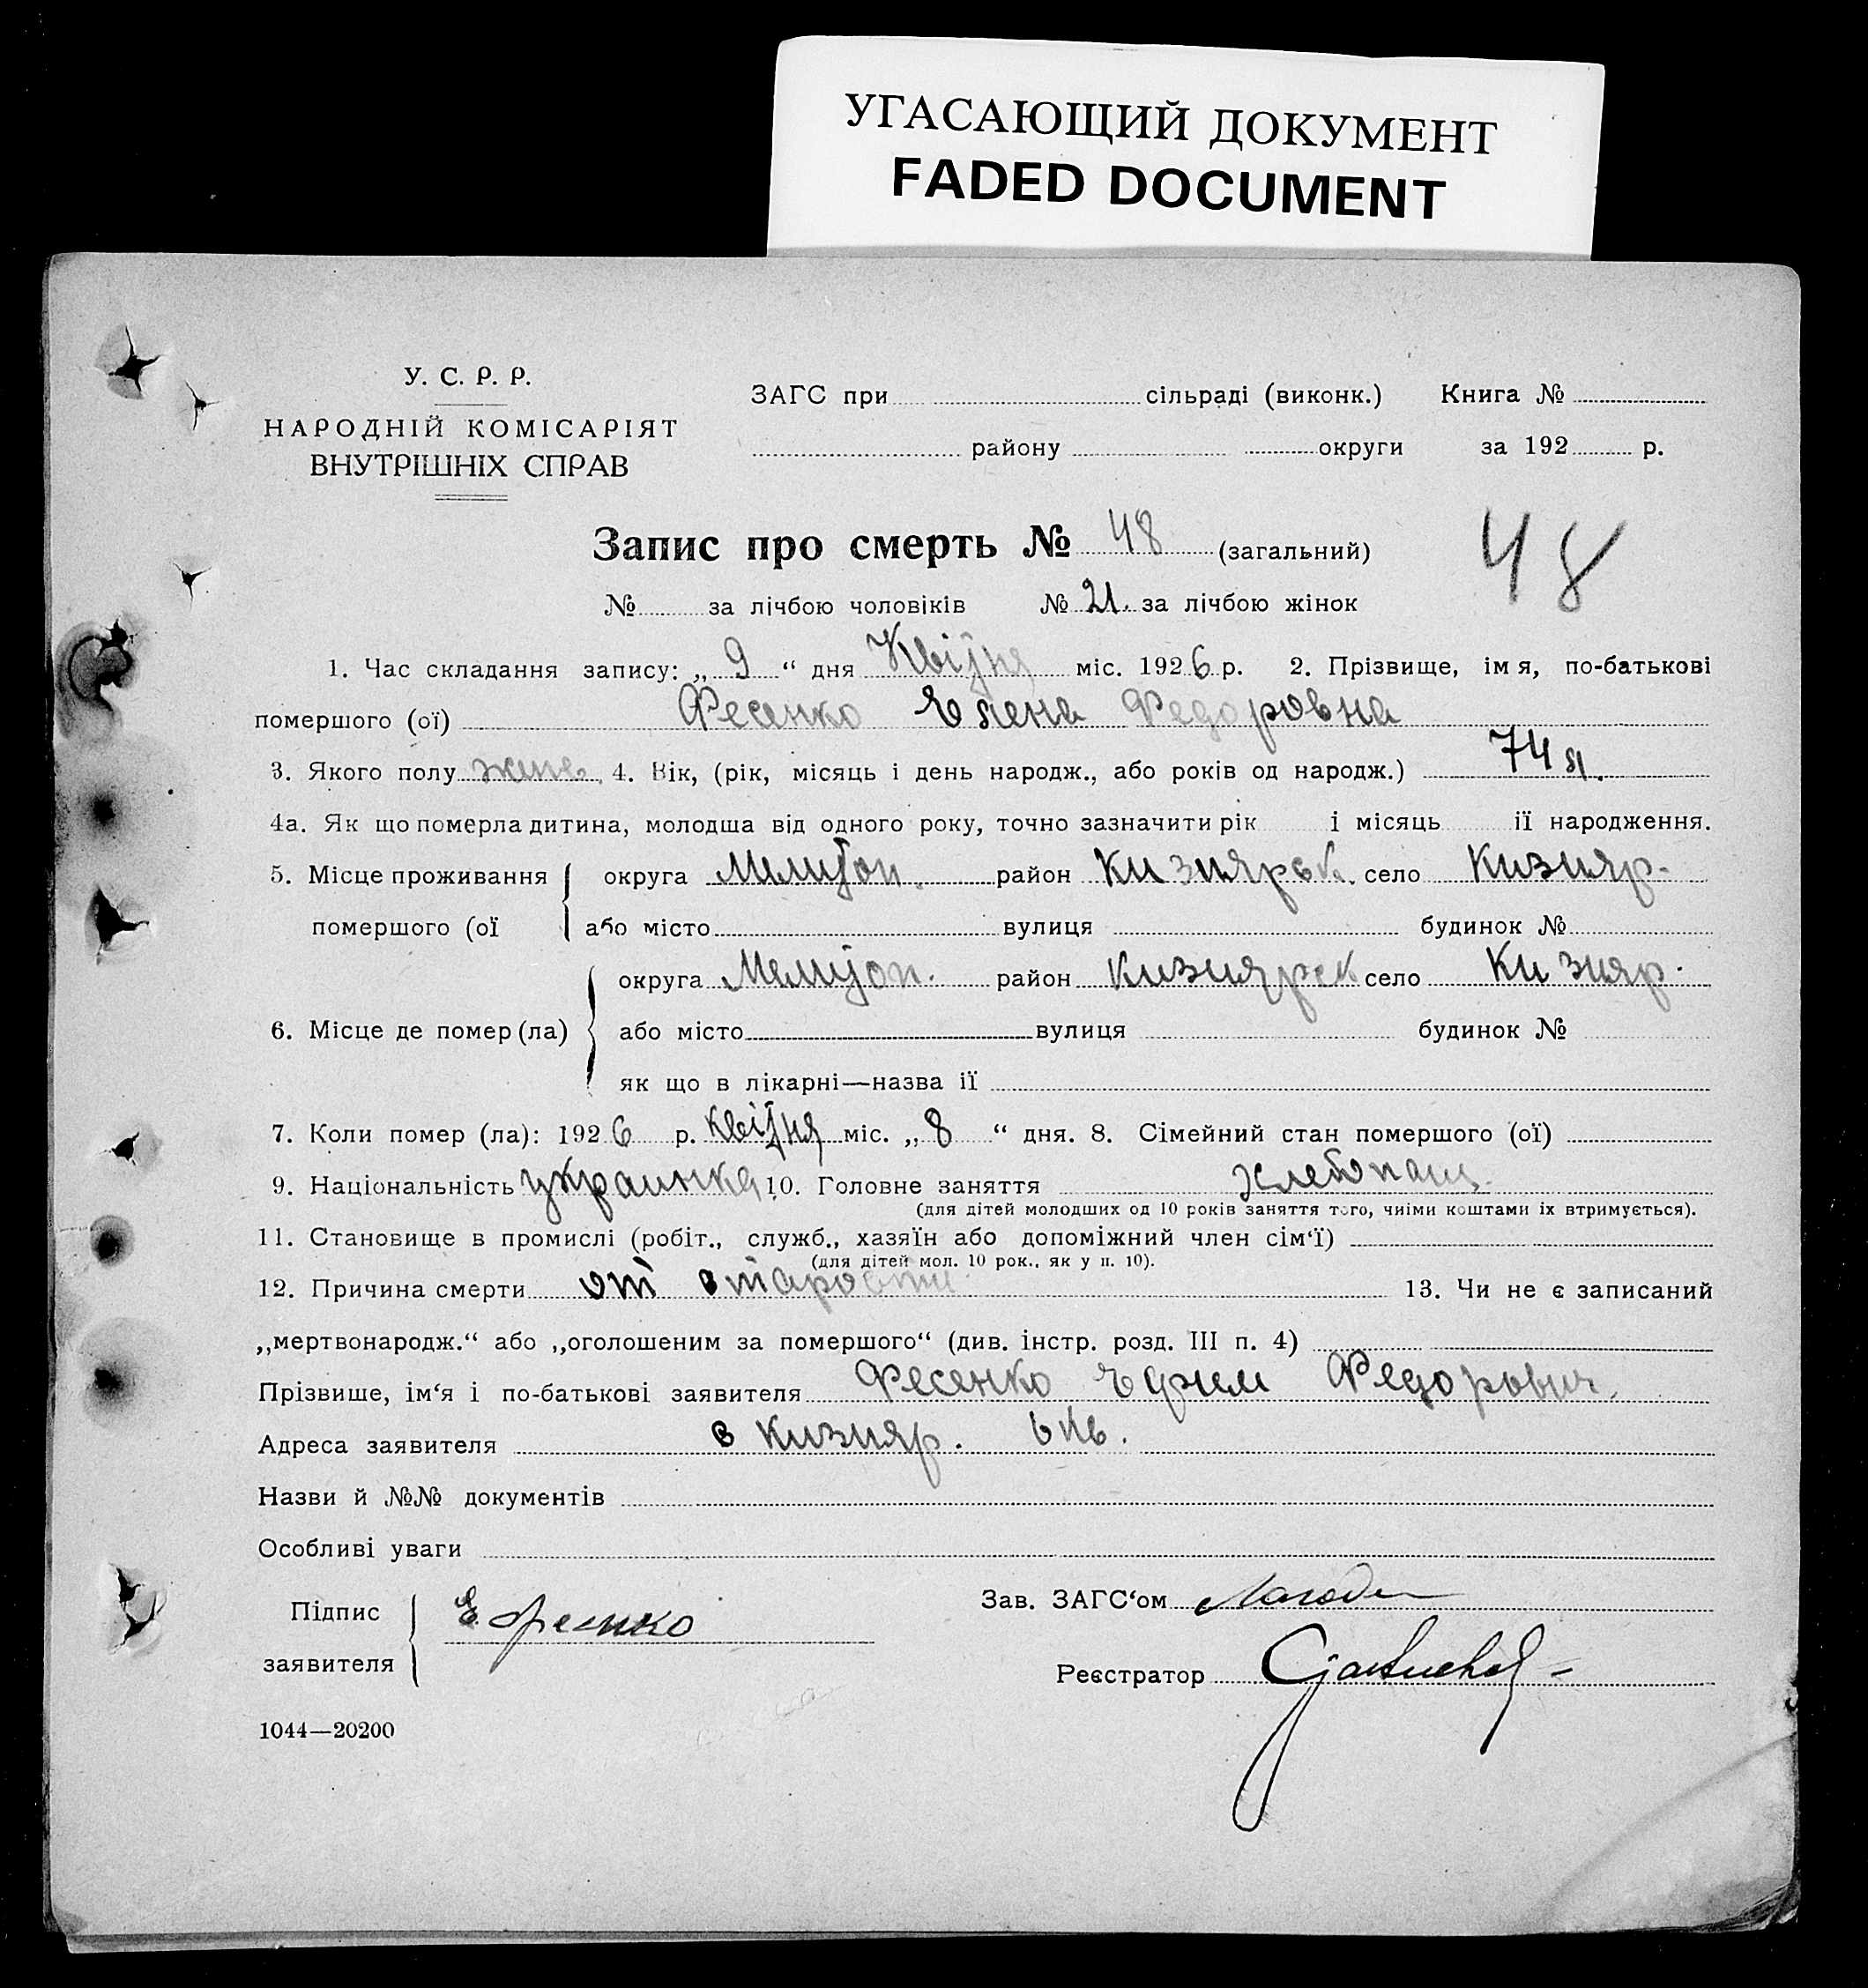 УГАСАЮЩИЙ ДОКУМЕНТ
FADED DOCUMENT
У. С. Р. Р.
НАРОДНІЙ КОМІСАРІЯТ
ВНУТРІШНІХ СПРАВ
ЗАГС при сільраді (виконк.) Книга №
району округи за 192 р.
Запис про смерть № 48 (загальний)
48
№ за лічбою чоловіків № 21. за лічбою жінок
1. Час складання запису: „ 9 “ дня Квітня міс. 1926 р. 2. Прізвище, імя, по-батькові
помершого (ої) Фесенко Елена Федоровна
3. Якого полу жен. 4. Вік, (рік, місяць і день народж., або років од народж.) 74 л.
4а. Як що померла дитина, молодша від одного року, точно зазначити рік і місяць ії народження.
5. Місце проживання округа Мелитоп. район Кизиярск. село Кизияр.
помершого (ої або місто вулиця будинок №
округа Мелитоп. район Кизиярск село Кизияр.
6. Місце де помер (ла) або місто вулиця будинок №
як що в лікарні—назва ії
7. Коли помер (ла): 1926 р. Квітня міс. „ 8 “ дня. 8. Сімейний стан помершого (ої)
9. Національність украинка 10. Головне заняття хлебопаш.
(для дітей молодших од 10 років заняття того, чиїми коштами іх втримується).
11. Становище в промислі (робіт., служб., хазяїн або допоміжний член сім‘ї)
(для дітей мол. 10 рок., як у п. 10).
12. Причина смерти от старости 13. Чи не є записаний
„мертвонародж.“ або „оголошеним за помершого“ (див. інстр. розд. III п. 4)
Прізвище, ім‘я і по-батькові заявителя Фесенко Ефим Федорович.
Адреса заявителя с Кизияр. 6 кв.
Назви й №№ документів
Особливі уваги
Підпис Е. Фесенко Зав. ЗАГС‘ом
заявителя Реєстратор
1044—20200